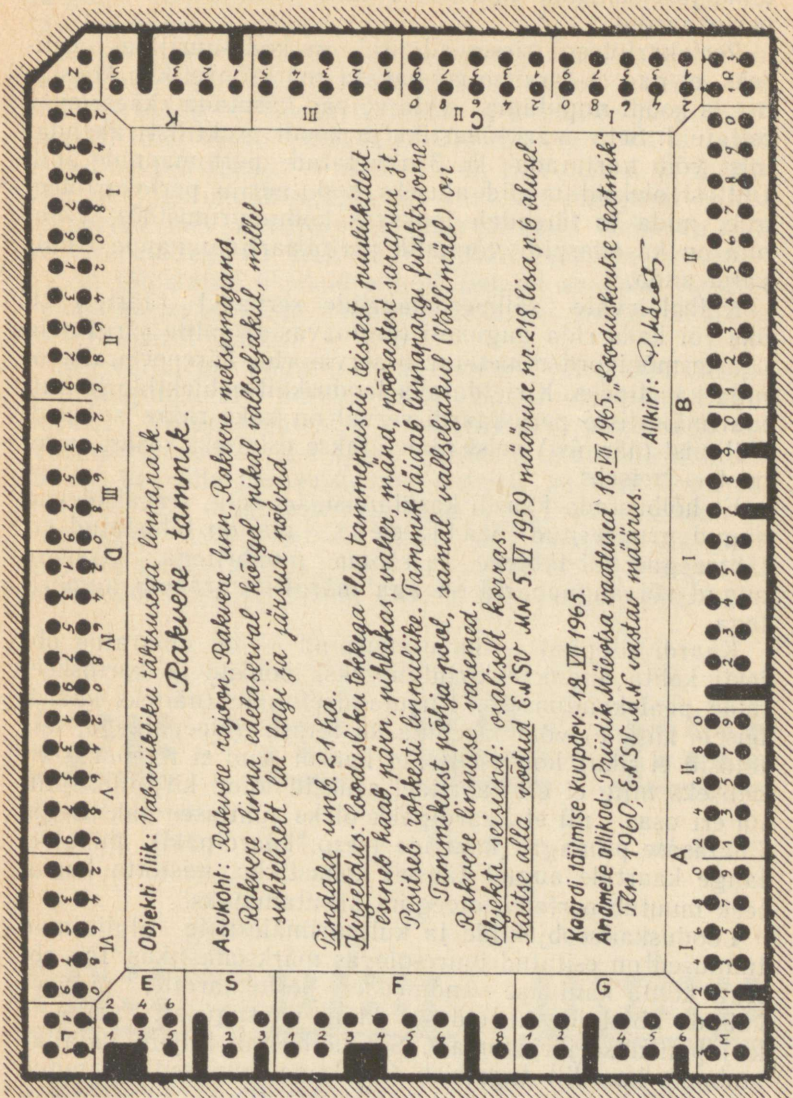 Objekti liik: Vabariikliku tähtsusega linnapark
Rakvere tammik.
Asukoht: Rakvere rajoon, Rakvere linn, Rakvere metsamajand.
Rakvere linna edelaserval kõrgel pikal vallseljakul, millel
suhteliselt lai lagi ja järsud nõlvad
Pindala umb. 21 ha.
Kirjeldus: loodusliku tekkega ilus tammepuistu, teistest puuliikidest
esineb haab, pärn, pihlakas vaher, mänd, põõsastest sarapuu jt.
Pesitseb rohkesti linnuliike. Tammik täidab linnapargi funktsioone.
Tammikust põhja pool, samal vallseljakul (Vallimäel) on
Rakvere linnuse varemed.
Objekti seisund: osaliselt korras.
Kaitse alla võetud ENSV MN 5. VI 1959 määruse nr. 218, lisa p. 6 alusel.
Kaardi täitmise kuupäev: 19. VII 1965.
Andmete allikad: Priidik Mäeotsa vaatlused 18. VII 1965; „Looduskaitse teatmik",
Tln. 1960; ENSV MN vastav määrus.
Allkiri:
N
K
III
C
II
I
R
I
II
III
D
IV
V
VI
L
E
S
F
G
M
I
A
II
I
B
II